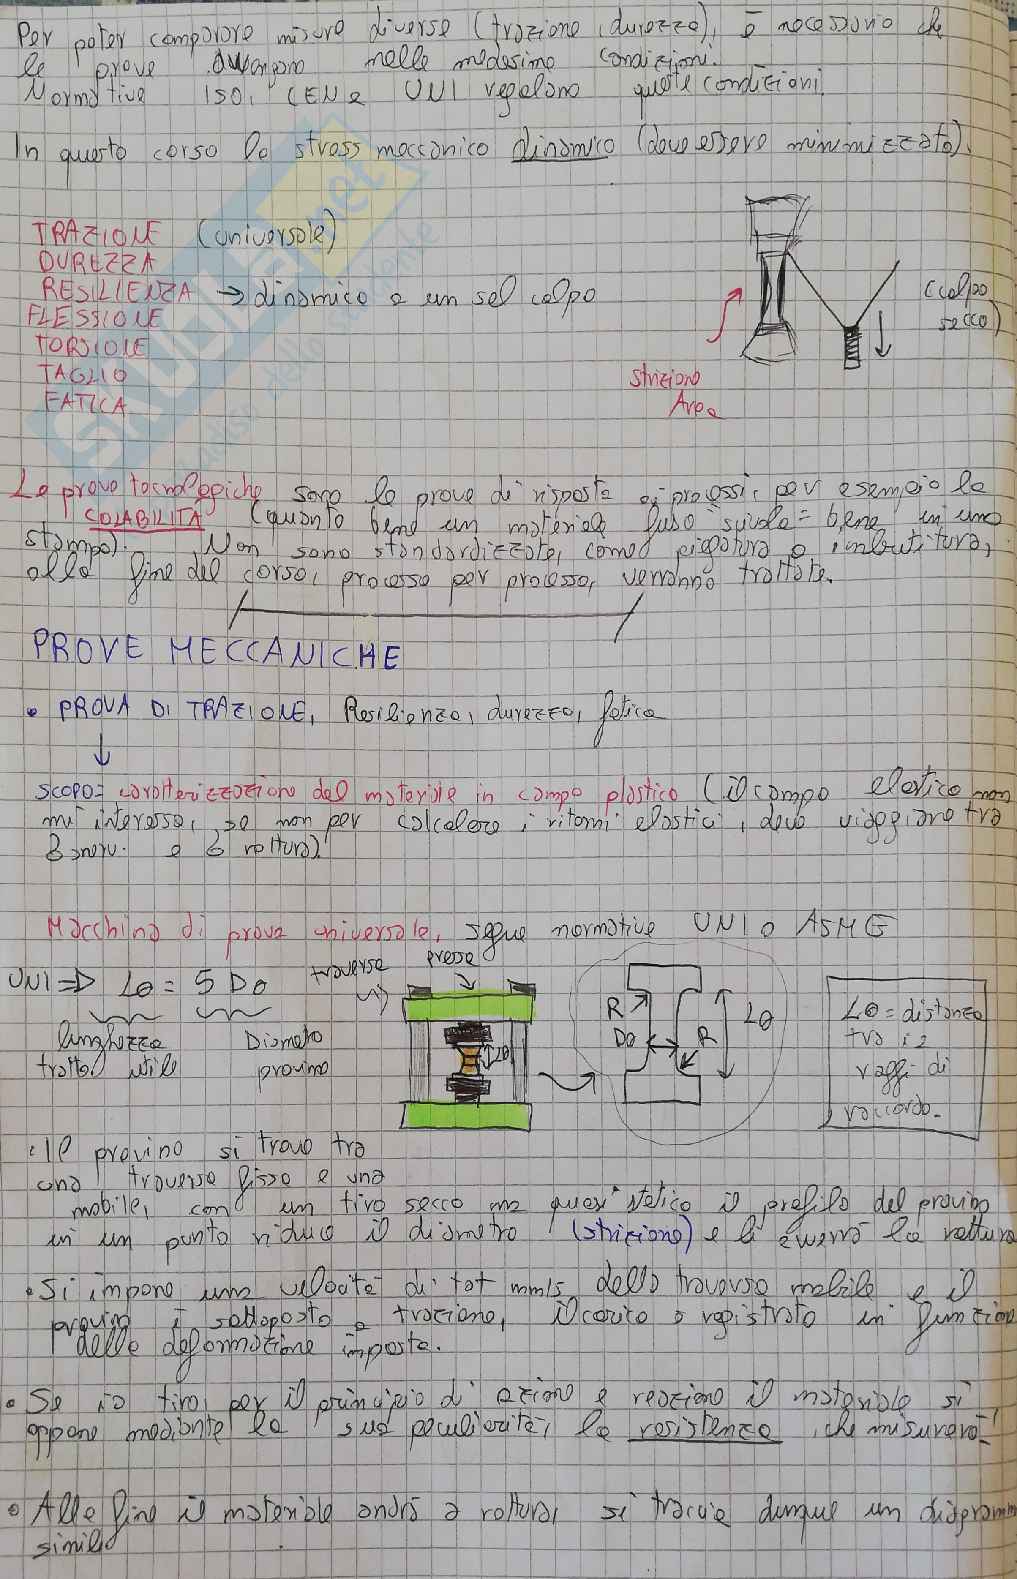 Per poter comparare misure diverse (trazione, durezza), è necessario che
le prove avvengano nelle medesime condizioni.
Normative ISO, CEN e UNI regolano queste condizioni.
In questo corso lo stress meccanico dinamico (deve essere minimizzato).
TRAZIONE (universale)
DUREZZA
RESILIENZA → dinamico a un sol colpo
FLESSIONE
TORSIONE
TAGLIO
FATICA
(colpo
secco)
strizione
Area
Le prove tecnologiche sono le prove di risposta ai processi, per esempio la
COLABILITÀ (quanto bene un materiale fuso "scivola" bene in uno
stampo). Non sono standardizzate, come piegatura o imbutitura,
alla fine del corso, processo per processo, verranno trattate.
PROVE MECCANICHE
• PROVA DI TRAZIONE, Resilienza, durezza, fatica
↓
SCOPO= caratterizzazione del materiale in campo plastico (il campo elastico non
mi interessa, se non per calcolare i ritorni elastici, devo viaggiare tra
δ snerv. e δ rottura)
Macchina di prova universale, segue normative UNI o ASME
UNI => L0 = 5 D0
lunghezza
tratto utile
Diametro
provino
traversa
prese
L0
R
D0
R
L0
L0 = distanza
tra i 2
raggi di
raccordo.
• Il provino si trova tra
una traversa fissa e una
mobile, con un tiro secco ma quasi statico il profilo del provino
in un punto riduce il diametro (strizione) e lì avverrà la rottura
• Si impone una velocità di tot mm/s della traversa mobile e il
provino è sottoposto a trazione, il carico è registrato in funzione
delle deformazione imposta.
• Se io tiro, per il principio di azione e reazione il materiale si
oppone mediante la sua peculiarità, la resistenza, che misurerò!
• Alla fine il materiale andrà a rottura, si traccia dunque un diagramm
simile
SKUOLA.net